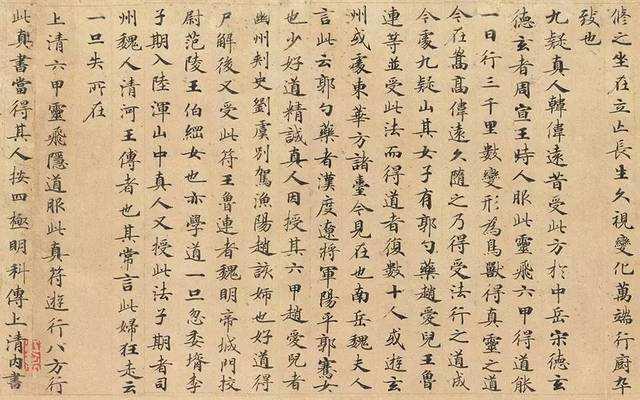 脩之坐在立亡長生久視變化萬端行厨卒
致也
九疑真人韓偉遠昔受此方於中岳宋德玄
德玄者周宣王時人服此靈飛六甲得道能
一日行三千里數變形為鳥獸得真靈之道
今在嵩高偉遠久隨之乃得受法行之道成
今處九疑山其女子有郭勺藥趙愛兒王魯
連等並受此法而得道者復數十人或遊玄
州或處東華方諸臺今見在也南岳魏夫人
言此云郭勺藥者漢度遼將軍陽平郭騫女
也少好道精誠真人因授其六甲趙愛兒者
幽州刺史劉虞別駕漁陽趙該姊也好道得
尸解後又受此符王魯連者魏明帝城門校
尉范陵王伯綱女也亦學道一旦忽委壻李
子期入陸渾山中真人又授此法子期者司
州魏人清河王傳者也其常言此婦狂走云
一旦失所在
上清六甲靈飛隱道服此真符遊行八方行
此真書當得其人按四極明科傳上清內書